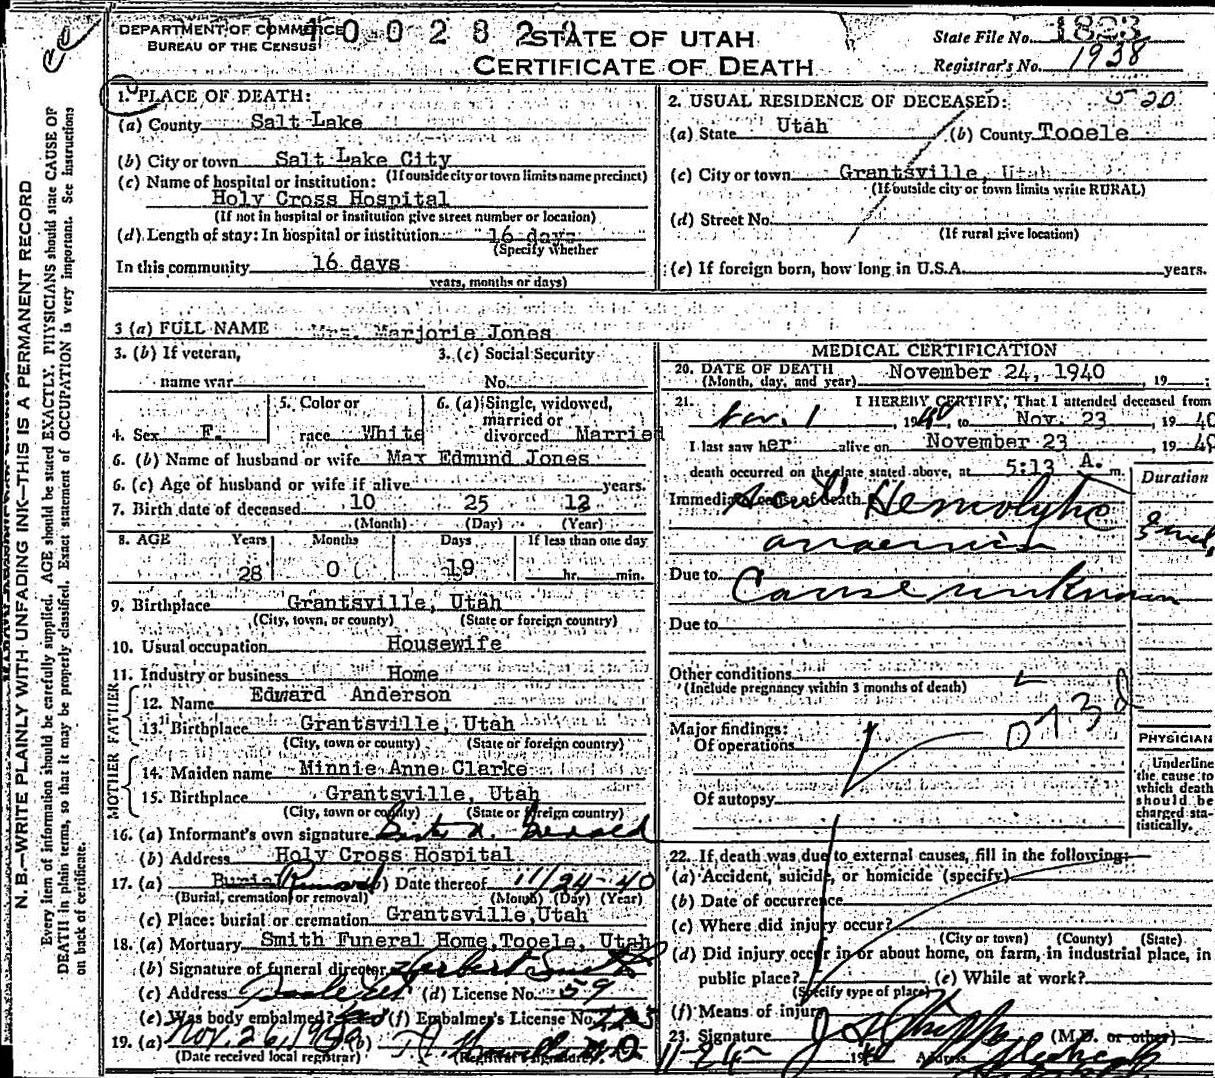 DEPARTMENT OF COMMERCE
BUREAU OF THE CENSUS
STATE OF UTAH
CERTIFICATE OF DEATH
State File No. 1823
Registrar's No. 1938
1. PLACE OF DEATH:
(a) County Salt Lake
(b) City or town Salt Lake City
(If outside city or town limits name precinct)
(c) Name of hospital or institution:
Holy Cross Hospital
(If not in hospital or institution give street number or location)
(d) Length of stay: In hospital or institution 16 days
(Specify whether
In this community 16 days
years, months or days)
2. USUAL RESIDENCE OF DECEASED: 520
(a) State Utah (b) County Tooele
(c) City or town Grantsville, Utah
(If outside city or town limits write RURAL)
(d) Street No.
(If rural give location)
(e) If foreign born, how long in U.S.A. years.
3 (a) FULL NAME Mrs. Marjorie Jones
3. (b) If veteran,
name war
3. (c) Social Security
No.
4. Sex F.
5. Color or
race White
6. (a) Single, widowed,
married or
divorced Married
6. (b) Name of husband or wife Max Edmund Jones
6. (c) Age of husband or wife if alive years.
7. Birth date of deceased 10 25 12
(Month) (Day) (Year)
8. AGE Years Months Days If less than one day
28 0 19 hr. min.
9. Birthplace Grantsville, Utah
(City, town, or county) (State or foreign country)
10. Usual occupation Housewife
11. Industry or business Home
FATHER
12. Name Edward Anderson
13. Birthplace Grantsville, Utah
(City, town or county) (State or foreign country)
MOTHER
14. Maiden name Minnie Anne Clarke
15. Birthplace Grantsville, Utah
(City, town or county) (State or foreign country)
16. (a) Informant's own signature
(b) Address Holy Cross Hospital
17. (a) Burial Removal (b) Date thereof 11/24-40
(Burial, cremation or removal) (Month) (Day) (Year)
(c) Place: burial or cremation Grantsville, Utah
18. (a) Mortuary Smith Funeral Home, Tooele, Utah
(b) Signature of funeral director Herbert Smith
(c) Address (d) License No. 59
(e) Was body embalmed? (f) Embalmer's License No.
19. (a) Nov. 26, 1940 (b)
(Date received local registrar) (Registrar's signature)
MEDICAL CERTIFICATION
20. DATE OF DEATH
(Month, day, and year) November 24, 1940, 19
21. I HEREBY CERTIFY, That I attended deceased from
Nov. 1, 1940, to Nov. 23, 19 40
I last saw her alive on November 23, 19 40
death occurred on the date stated above, at 5:13 A. m.
Duration
Immediate cause of death Acute Hemolytic
anaemia
Due to Cause unknown
Due to
Other conditions
(Include pregnancy within 3 months of death)
Major findings:
Of operations
Of autopsy
PHYSICIAN
Underline
the cause to
which death
should be
charged sta-
tistically.
22. If death was due to external causes, fill in the following:
(a) Accident, suicide, or homicide (specify)
(b) Date of occurrence
(c) Where did injury occur?
(City or town) (County) (State)
(d) Did injury occur in or about home, on farm, in industrial place, in
public place? (e) While at work?
(Specify type of place)
(f) Means of injury
23. Signature (M.D. or other)
1940 Address
N. B.—WRITE PLAINLY WITH UNFADING INK—THIS IS A PERMANENT RECORD
Every item of information should be carefully supplied. AGE should be stated EXACTLY. PHYSICIANS should state CAUSE OF
DEATH in plain terms, so that it may be properly classified. Exact statement of OCCUPATION is very important. See instructions
on back of certificate.